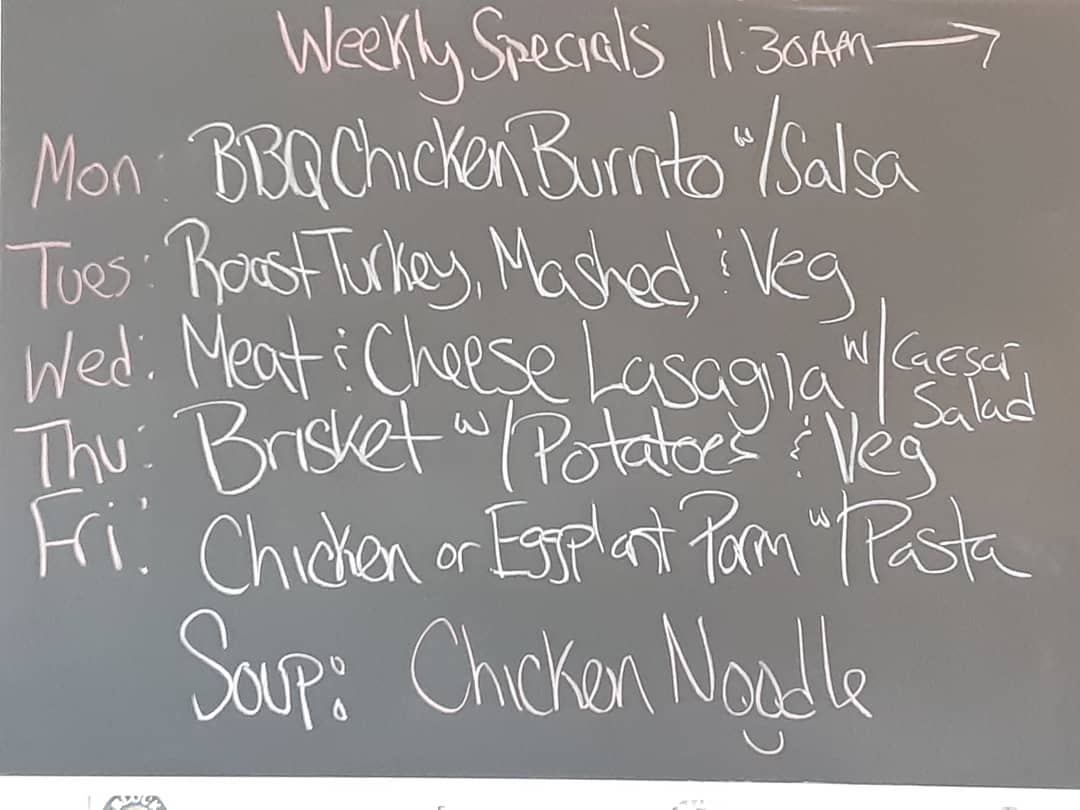 Weekly Specials 11:30AM →
Mon: BBQ Chicken Burrito w/Salsa
Tues: Roast Turkey, Mashed, & Veg
Wed: Meat & Cheese Lasagna w/Caesar Salad
Thu: Brisket w/Potatoes & Veg
Fri: Chicken or Eggplant Parm w/Pasta
Soup: Chicken Noodle